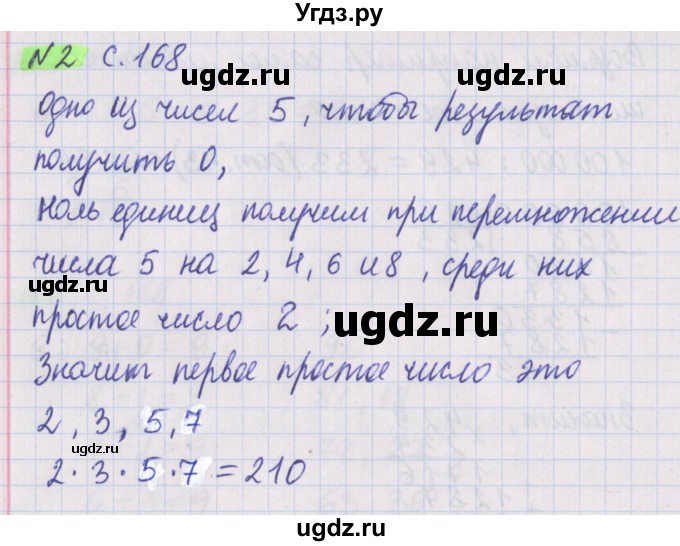 Угдз.ру
№2 с.168
ugdz.ru ugdz.ru
одно из чисел 5, чтобы результат
получить 0,
ugdz.ru
ноль единиц получим при перемножении
числа 5 на 2, 4, 6 и 8, среди них
ugdz.ru
простое число 2;
ugdz.ru
Значит первое простое число это
2, 3, 5, 7
ugdz.ru
2·3·5·7=210
ugdz.ru
ugdz.ru